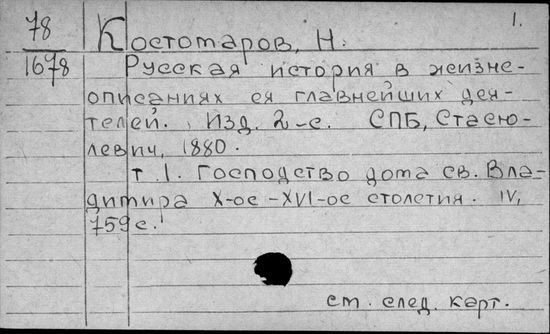 78
1678
1.
Костомаров, Н.
Русская история в жизне-
описаниях ея главнейших дея-
телей. Изд. 2-е. СПБ, Стасю-
левич, 1880.
т. 1. Господство дома св. Вла-
димира X-ое - XVI-ое столетия. IV,
759 с.
см. след. карт.